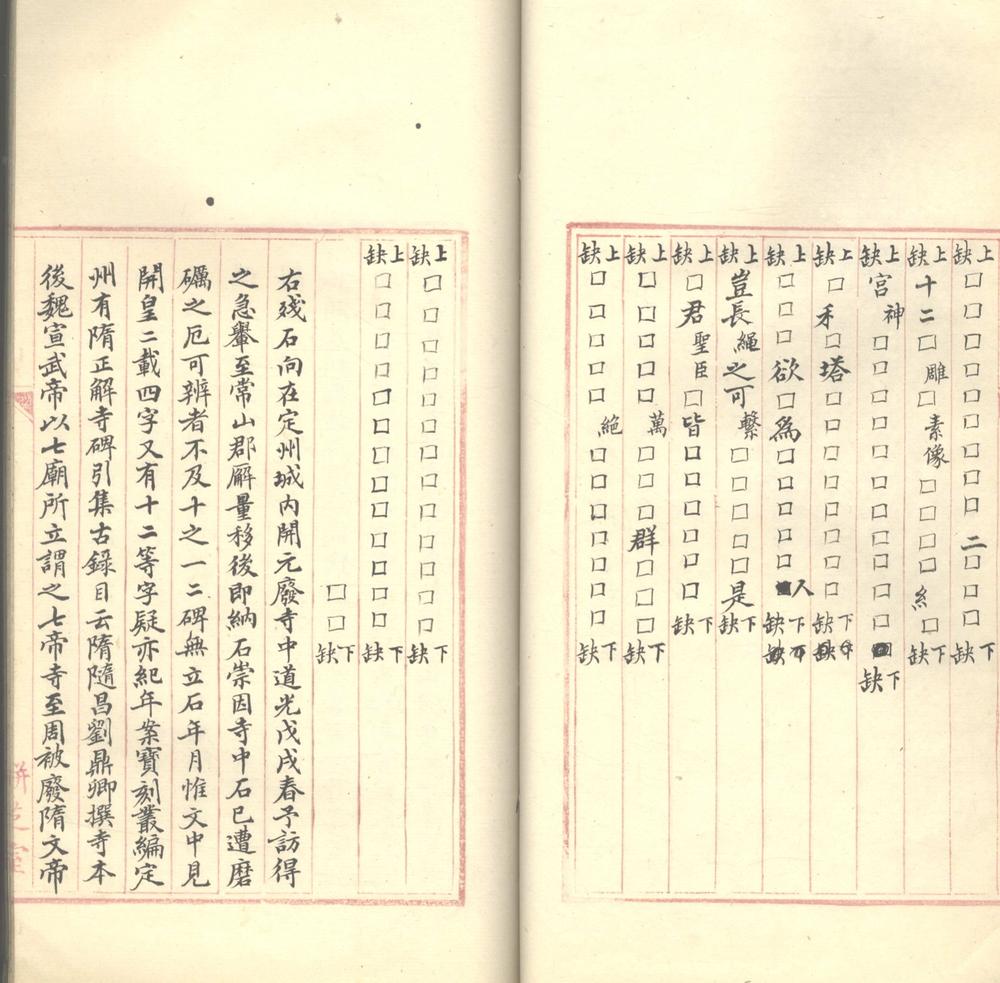 上缺□□□□□□□□□二□□下缺
上缺十二□雕□素像□□□□糹□下缺
上缺宮神□□□□□□□□□□□下缺
上缺□禾□塔□□□□□□□□下缺
上缺□□□欲□為□□□□□人下缺
上缺豈長繩之可繫□□□□□是下缺
上缺□君聖臣□皆□□□□□□下缺
上缺□□□□□萬□□□群□□下缺
上缺□□□□□絕□□□□□□□下缺
上缺□□□□□□□□□□□□□下缺
上缺□□□□□□□□□□□□□下缺
□□下缺
右殘石向在定州城內開元廢寺中道光戊戌春予訪得
之急轝至常山郡廨量移後即納石崇因寺中石已遭磨
礪之厄可辨者不及十之一二碑無立石年月惟文中見
開皇二載四字又有十二等字疑亦紀年案寶刻叢編定
州有隋正解寺碑引集古錄目云隋隨昌劉鼎卿撰寺本
後魏宣武帝以七廟所立謂之七帝寺至周被廢隋文帝